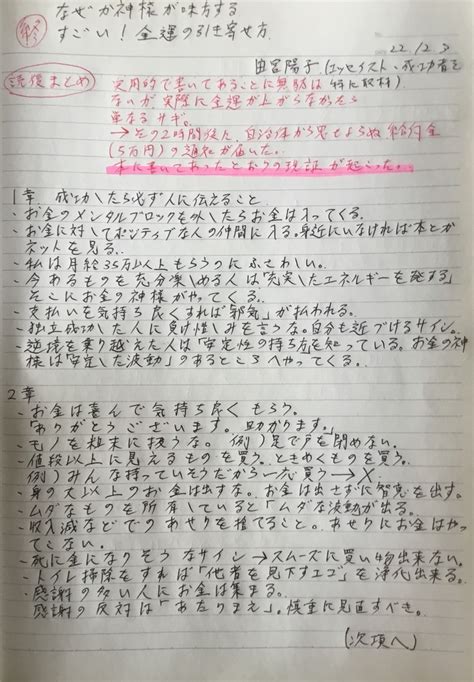 終
なぜか神様が味方する
すごい!金運の引き寄せ方
22/2.3
田宮陽子(エッセイスト、成功者を
特に取材)
読後まとめ
実用的で書いてあることに無駄は
ないが実際に金運が上がらなかったら
単なるサギ。
→その2時間後に自治体から思もよらぬ給付金
(5万円)の通知が届いた。
本に書いてあったとおりの現証が起こった。
1章 成功したら必ず人に伝えること
・お金のメンタルブロックを外したらお金は入ってくる。
・お金に対してポジティブな人の仲間に入る。身近にいなければ本とか
ネットを見る。
・私は月給35万以上もらうのにふさわしい。
・今あるものを充分楽しめる人は「充実したエネルギーを発する」
そこにお金の神様がやってくる。
・支払いを気持ち良くすれば「邪気」が払われる。
・独立成功した人に負け惜しみを言うな。自分も近づけるサイン。
・逆境を乗り越えた人は「安定性の持ち方」を知っている。お金の神
様は「安定した波動」のあるところへやってくる。
2章
・お金は喜んで気持ち良くもらう。
「ありがとうございます。助かります。」
・モノを粗末に扱うな。例)足で戸を閉めない。
・値段以上に見えるものを買う。ときめくものを買う。
例)みんな持っていそうだから一応買う→×
・身の丈以上のお金は出すな。お金は出さずに智恵を出す。
・ムダなものを所有していると「ムダな波動が出る。
・収入減などでのあせりを捨てること。あせりにお金はやっ
てこない。
・死に金になりそうなサイン→スムーズに買い物出来ない。
・トイレ掃除をすれば「他者を見下すエゴ」を浄化出来る。
・感謝の多い人にお金は集まる。
感謝の反対は「あたりまえ」。慎重に見直すべき。
(次項へ)